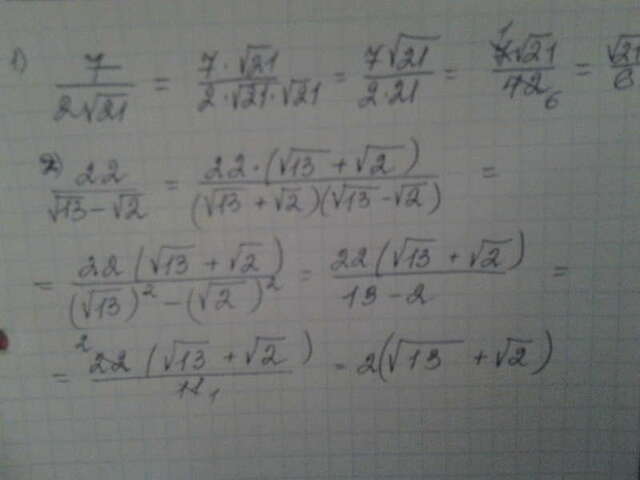 1) 7/(2√21) = (7·√21)/(2·√21·√21) = (7√21)/(2·21) = (7√21)/42 1 6 = √21/6
2) 22/(√13-√2) = (22·(√13+√2))/((√13+√2)(√13-√2)) =
= (22(√13+√2))/((√13)²-(√2)²) = (22(√13+√2))/(13-2) =
= 2 (22(√13+√2))/11 1 = 2(√13+√2)